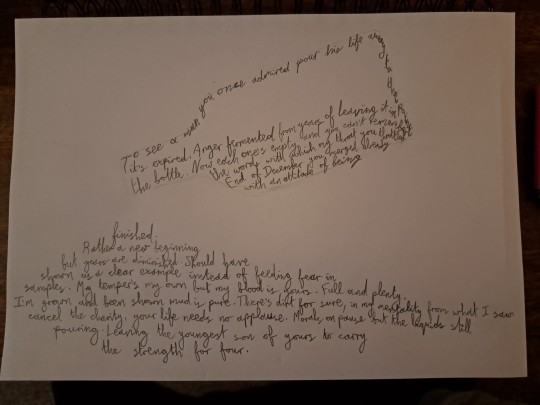 To see a man you once admired pour his life away
it's expired. Anger fermented from years of leaving it in
the bottle. Now each one's empty and you can't remember
the words with which my that you thought
End of December you emerged already
with an attitude of being
finished.
Rather a new beginning
but years are diminished. Should have
shown us a clear example instead of feeding fear in
samples. My temper's my own but my blood is yours. Full and plenty.
I'm grown and been shown mud is pure. There's dirt for sure, in my mentality from what I saw
cancel the charity, your life needs no applause. Morals on pause but the liquids still
pouring. Leaving the youngest son of yours to carry
the strength for four.